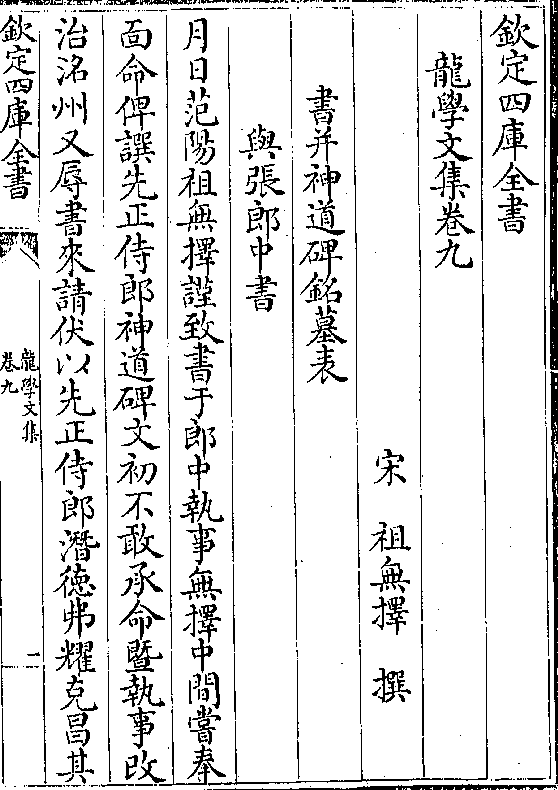 欽定四庫全書
龍學文集卷九
宋　祖無擇　撰
書并神道碑銘墓表
與張郎中書
月日范陽祖無擇謹致書于郎中執事無擇中間嘗奉
面命俾譔先正侍郎神道碑文初不敢承命暨執事改
治洺州又辱書來請伏以先正侍郎潛德弗耀克昌其
欽定四庫全書
龍學文集
卷九
一